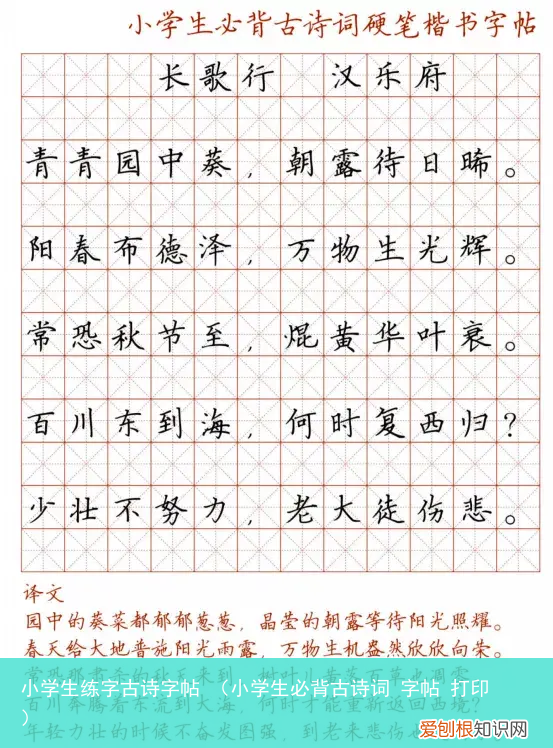 小学生必背古诗词硬笔楷书字帖
长歌行 汉乐府
青青园中葵，朝露待日晞。
阳春布德泽，万物生光辉。
常恐秋节至，焜黄华叶衰。
百川东到海，何时复西归？
少壮不努力，老大徒伤悲。
译文
园中的葵菜都郁郁葱葱，晶莹的朝露等待阳光照耀。
春天给大地普施阳光雨露，万物生机盎然欣欣向荣。
小学生练字古诗字帖 （小学生必背古诗词 字帖 打印
）
百川奔腾着东流到大海，何时才能重新返回西境？
年轻力壮的时候不奋发图强，到老来悲伤
爱刨根知识网